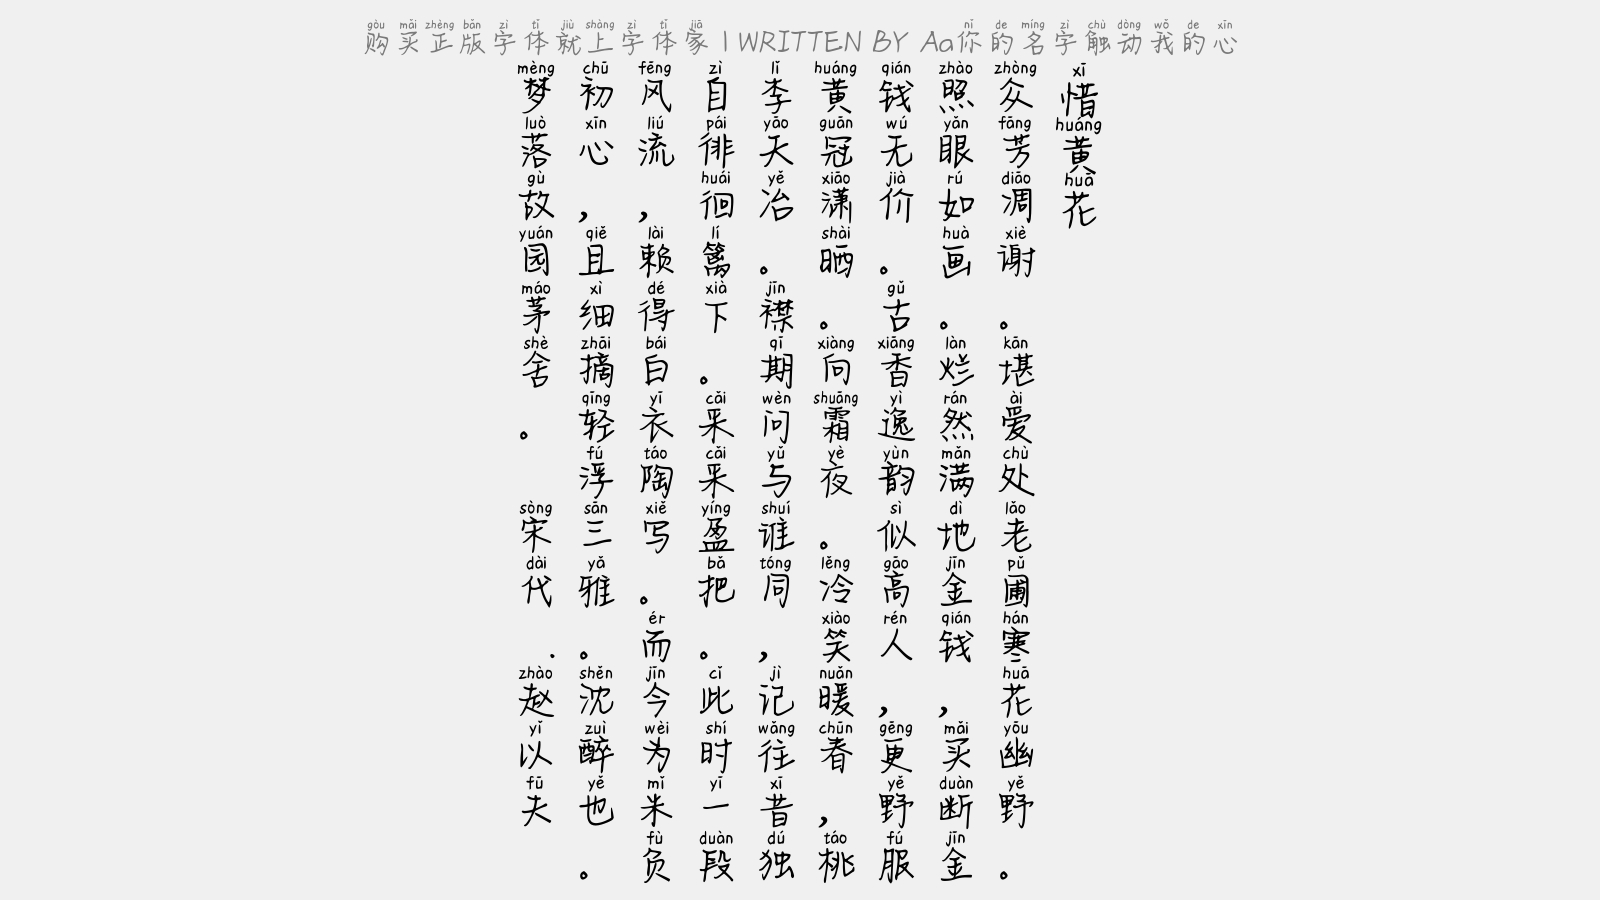 购买正版字体就上字体家 | WRITTEN BY Aa你的名字触动我的心
惜黄花
众芳凋谢。堪爱处老圃寒花幽野。
照眼如画。烂然满地金钱，买断金
钱无价。古香逸韵似高人，更野服
黄冠潇晒。向霜夜。冷笑暖春，桃
李夭冶。襟期问与谁同，记往昔独
自徘徊篱下。采采盈把。此时一段
风流，赖得白衣陶写。而今为米负
初心，且细摘轻浮三雅。沈醉也。
梦落故园茅舍。 宋代.赵以夫